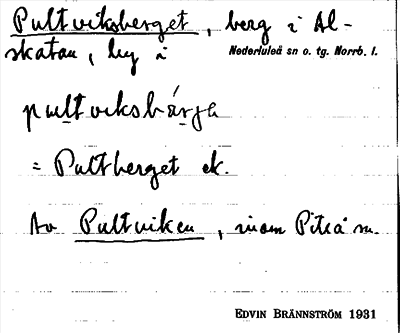 Pultviksberget, berg i Al-
skatan, by i Nederluleå sn o. tg. Norrb. l.
pultviksbärja
= Pultberget ek.
Av Pultviken, inom Piteå sn.
EDVIN BRÄNNSTRÖM 1931